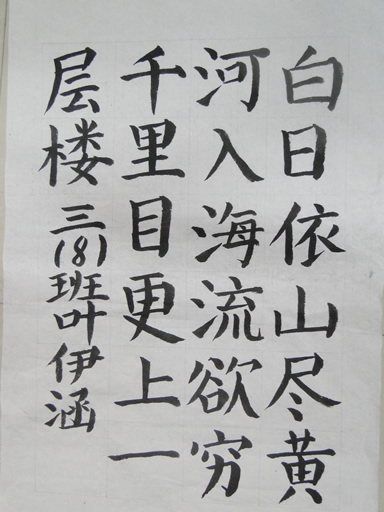 白日依山尽黄
河入海流欲穷
千里目更上一
层楼 三(8)班叶伊涵